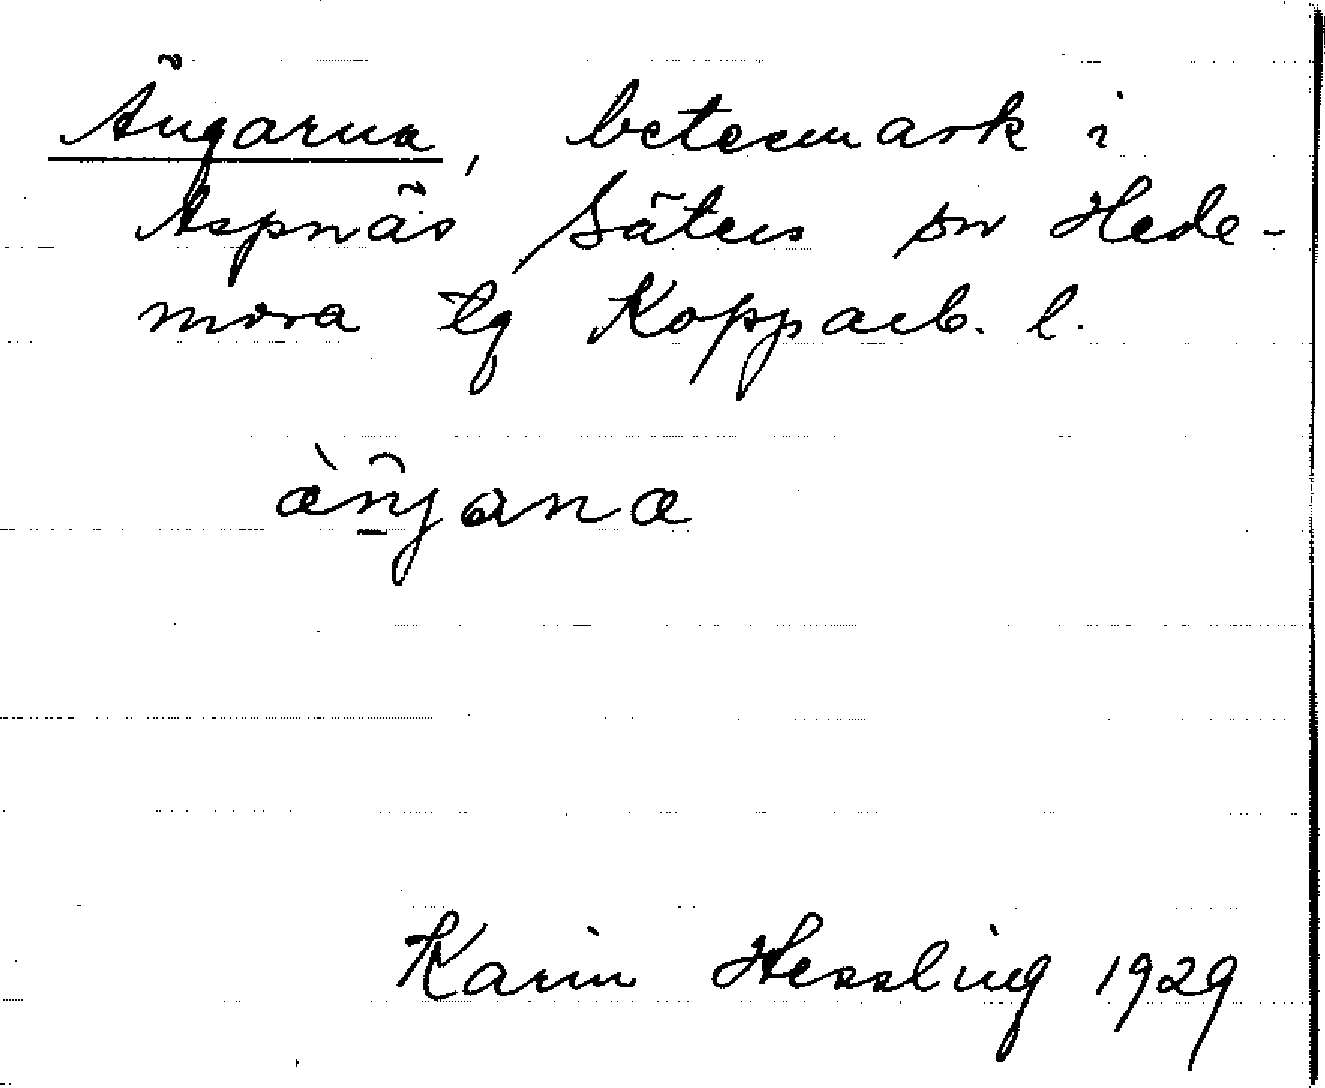 Ängarna, betesmark i
Aspnäs Säters sn Hede-
mora tg Kopparb. l.
æ̀n̠̑jana
Karin Hessling 1929